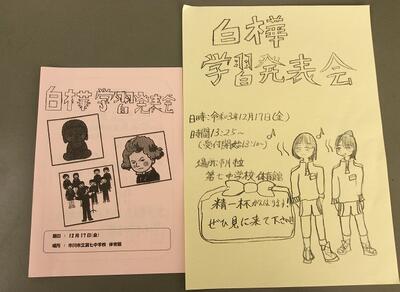 白樺学習発表会
期日 : 12月17日(金)
場所 : 市川市立第七中学校 体育館
白樺
学習発表会
日時:令和3年12月17日(金)
時間 13:25〜
(受付開始13:10〜)
場所:市川市立
第七中学校 体育館
精一杯がんばります!
ぜひ見に来て下さい!